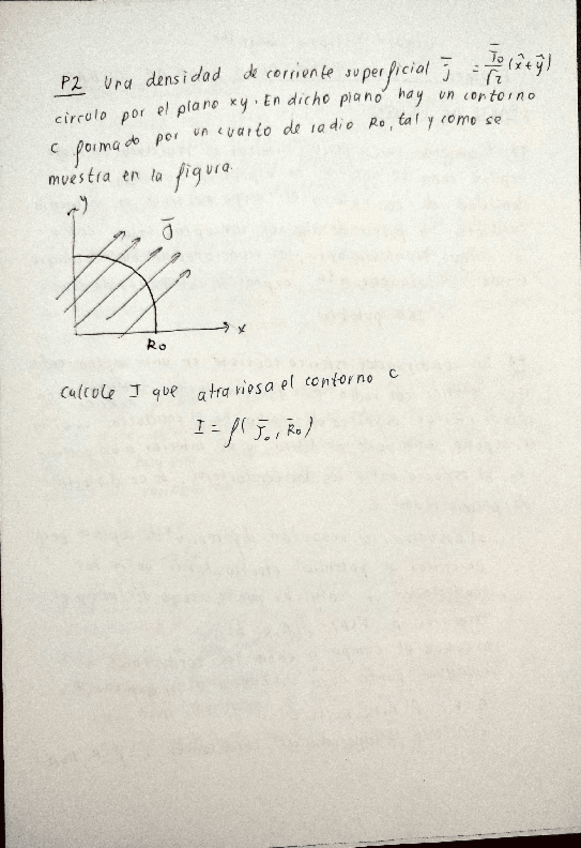 P2 Una densidad de corriente superficial J̄ = J̄o/√2 (x̂+ŷ)
circulo por el plano xy. En dicho plano hay un contorno
c formado por un cuarto de radio Ro, tal y como se
muestra en la figura.
y
J̄
x
Ro
Calcule I que atraviesa el contorno C
I = f( J̄o, R̄o)